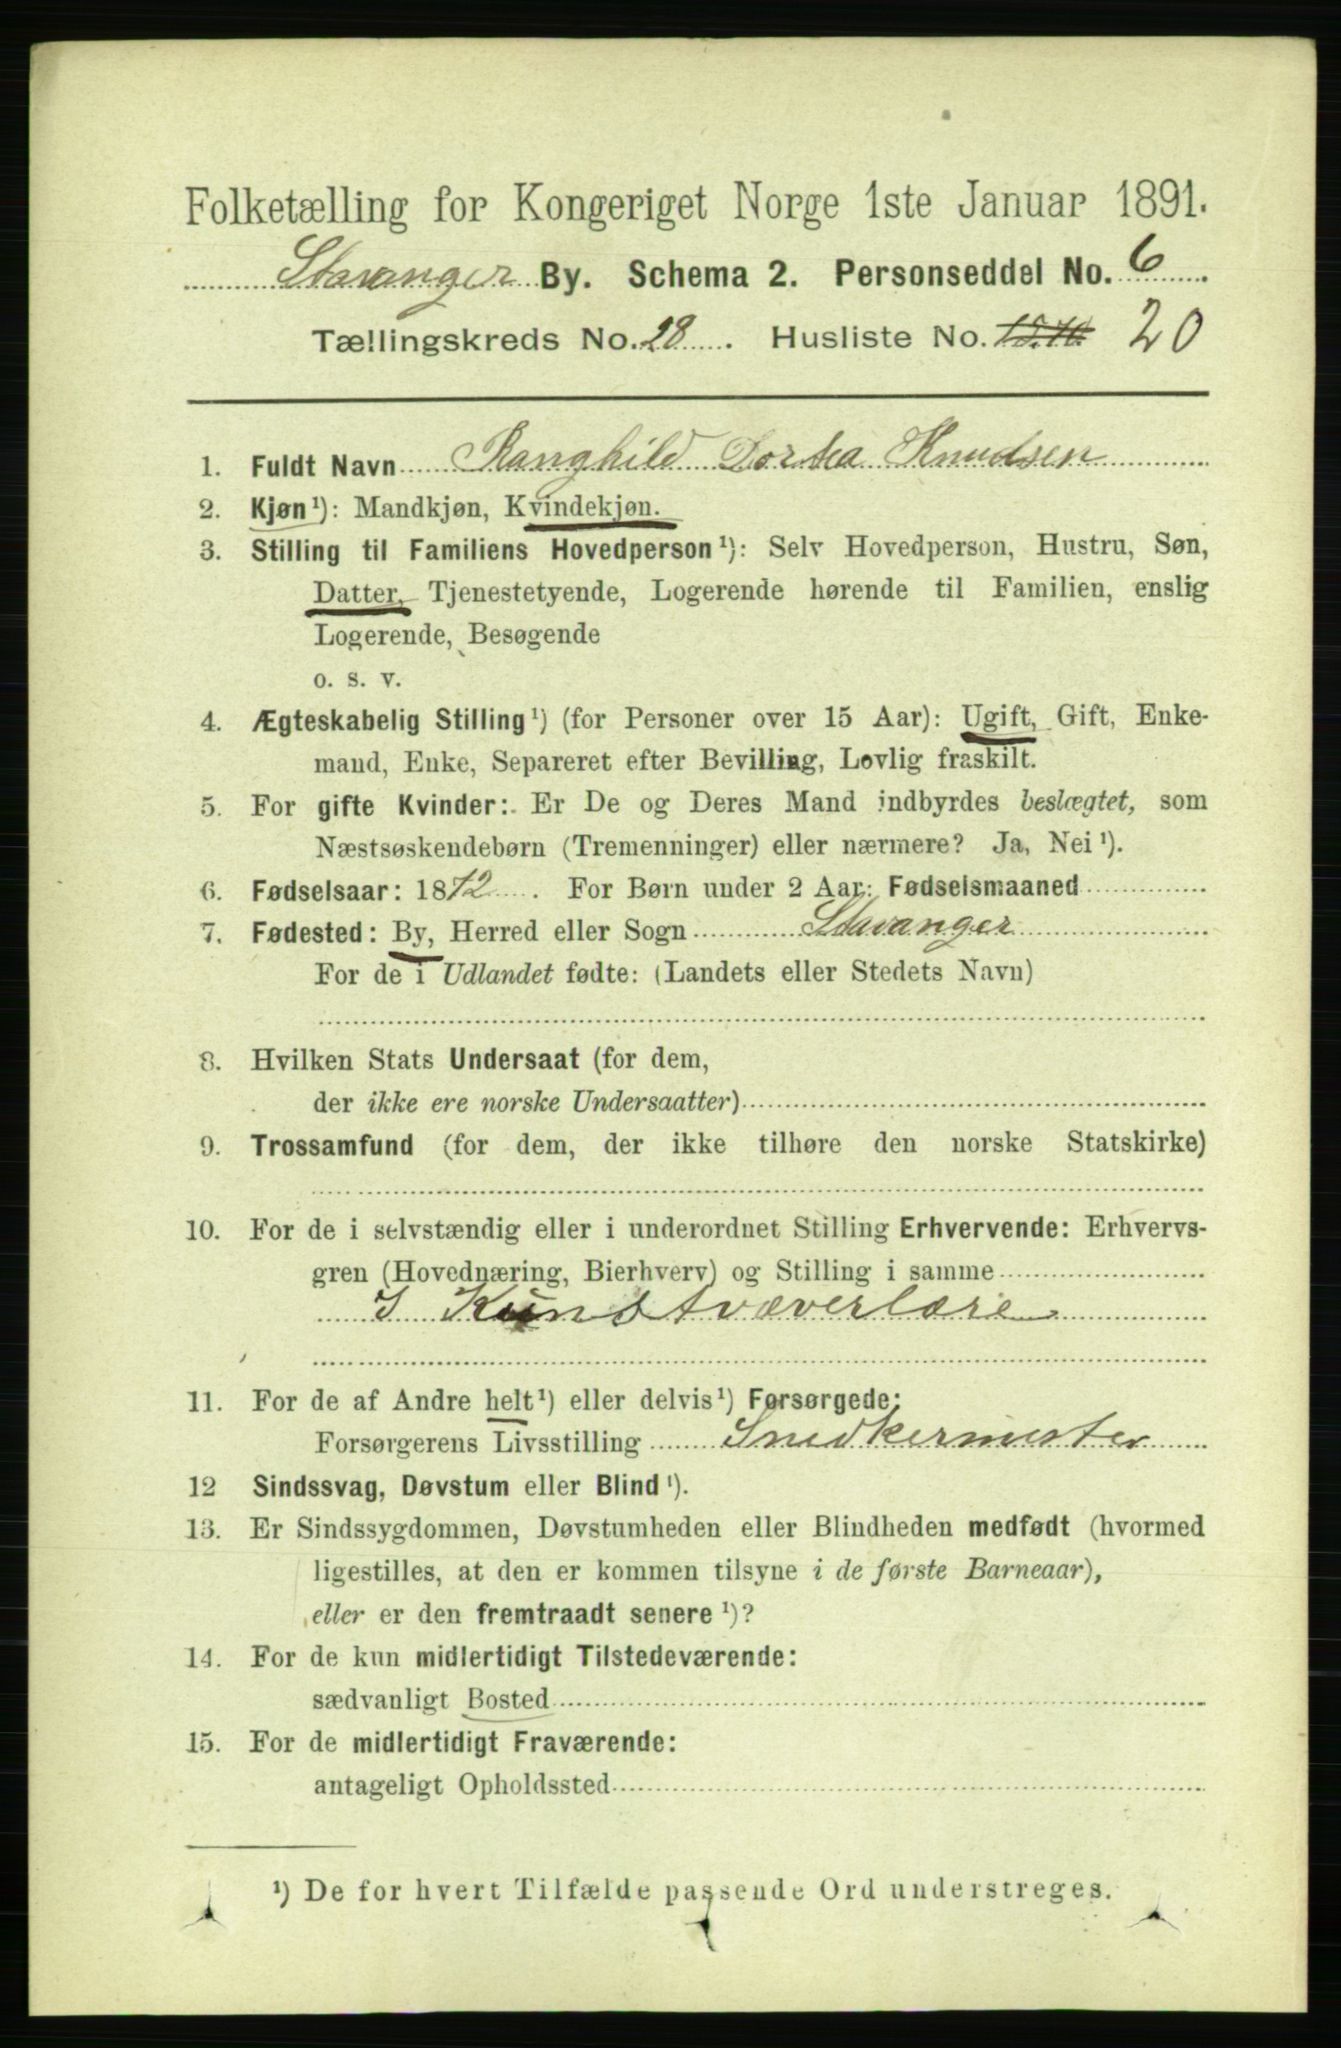 Folketælling for Kongeriget Norge 1ste Januar 1891.
Stavanger By. Schema 2. Personseddel No. 6
Tællingskreds No. 28. Husliste No. 20
1. Fuldt Navn Ranghild Dortea Knudsen
2. Kjøn¹): Mandkjøn, Kvindekjøn.
3. Stilling til Familiens Hovedperson¹): Selv Hovedperson, Hustru, Søn,
Datter, Tjenestetyende, Logerende hørende til Familien, enslig
Logerende, Besøgende
o. s. v.
4. Ægteskabelig Stilling¹) (for Personer over 15 Aar): Ugift, Gift, Enke-
mand, Enke, Separeret efter Bevilling, Lovlig fraskilt.
5. For gifte Kvinder: Er De og Deres Mand indbyrdes beslægtet, som
Næstsøskendebørn (Tremenninger) eller nærmere? Ja, Nei¹).
6. Fødselsaar: 1872. For Børn under 2 Aar: Fødselsmaaned
7. Fødested: By, Herred eller Sogn Stavanger
For de i Udlandet fødte: (Landets eller Stedets Navn)
8. Hvilken Stats Undersaat (for dem,
der ikke ere norske Undersaatter)
9. Trossamfund (for dem, der ikke tilhøre den norske Statskirke)
10. For de i selvstændig eller i underordnet Stilling Erhvervende: Erhvervs-
gren (Hovednæring, Bierhverv) og Stilling i samme
I Kunstvæverlære
11. For de af Andre helt¹) eller delvis¹) Forsørgede:
Forsørgerens Livsstilling Snedkermester
12 Sindssvag, Døvstum eller Blind¹).
13. Er Sindssygdommen, Døvstumheden eller Blindheden medfødt (hvormed
ligestilles, at den er kommen tilsyne i de første Barneaar),
eller er den fremtraadt senere¹)?
14. For de kun midlertidigt Tilstedeværende:
sædvanligt Bosted
15. For de midlertidigt Fraværende:
antageligt Opholdssted
¹) De for hvert Tilfælde passende Ord understreges.